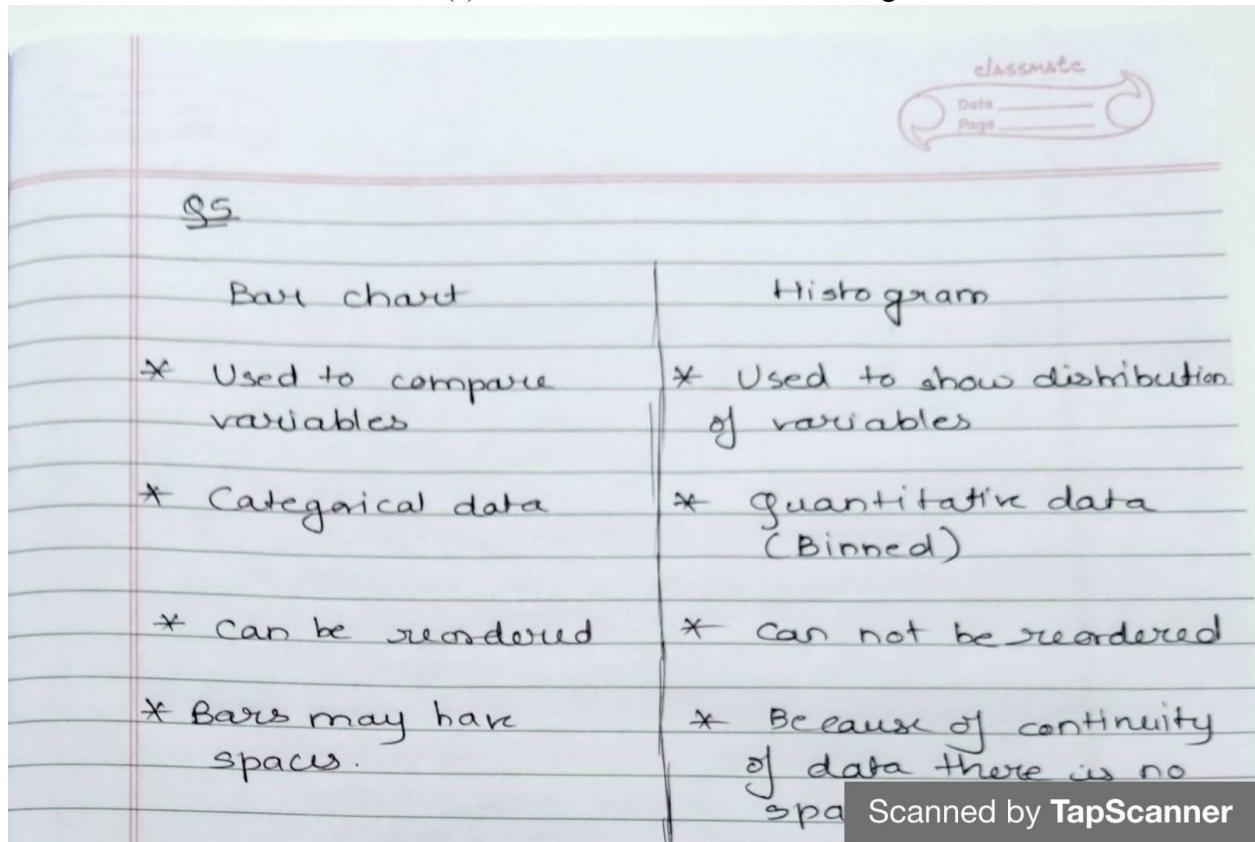 classmate
Date
Page
Q5
Bar chart
Histogram
* Used to compare
variables
* Used to show distribution
of variables
* Categorical data
* Quantitative data
(Binned)
* Can be reordered
* Can not be reordered
* Bars may have
spaces.
* Because of continuity
of data there is no
spa
Scanned by TapScanner